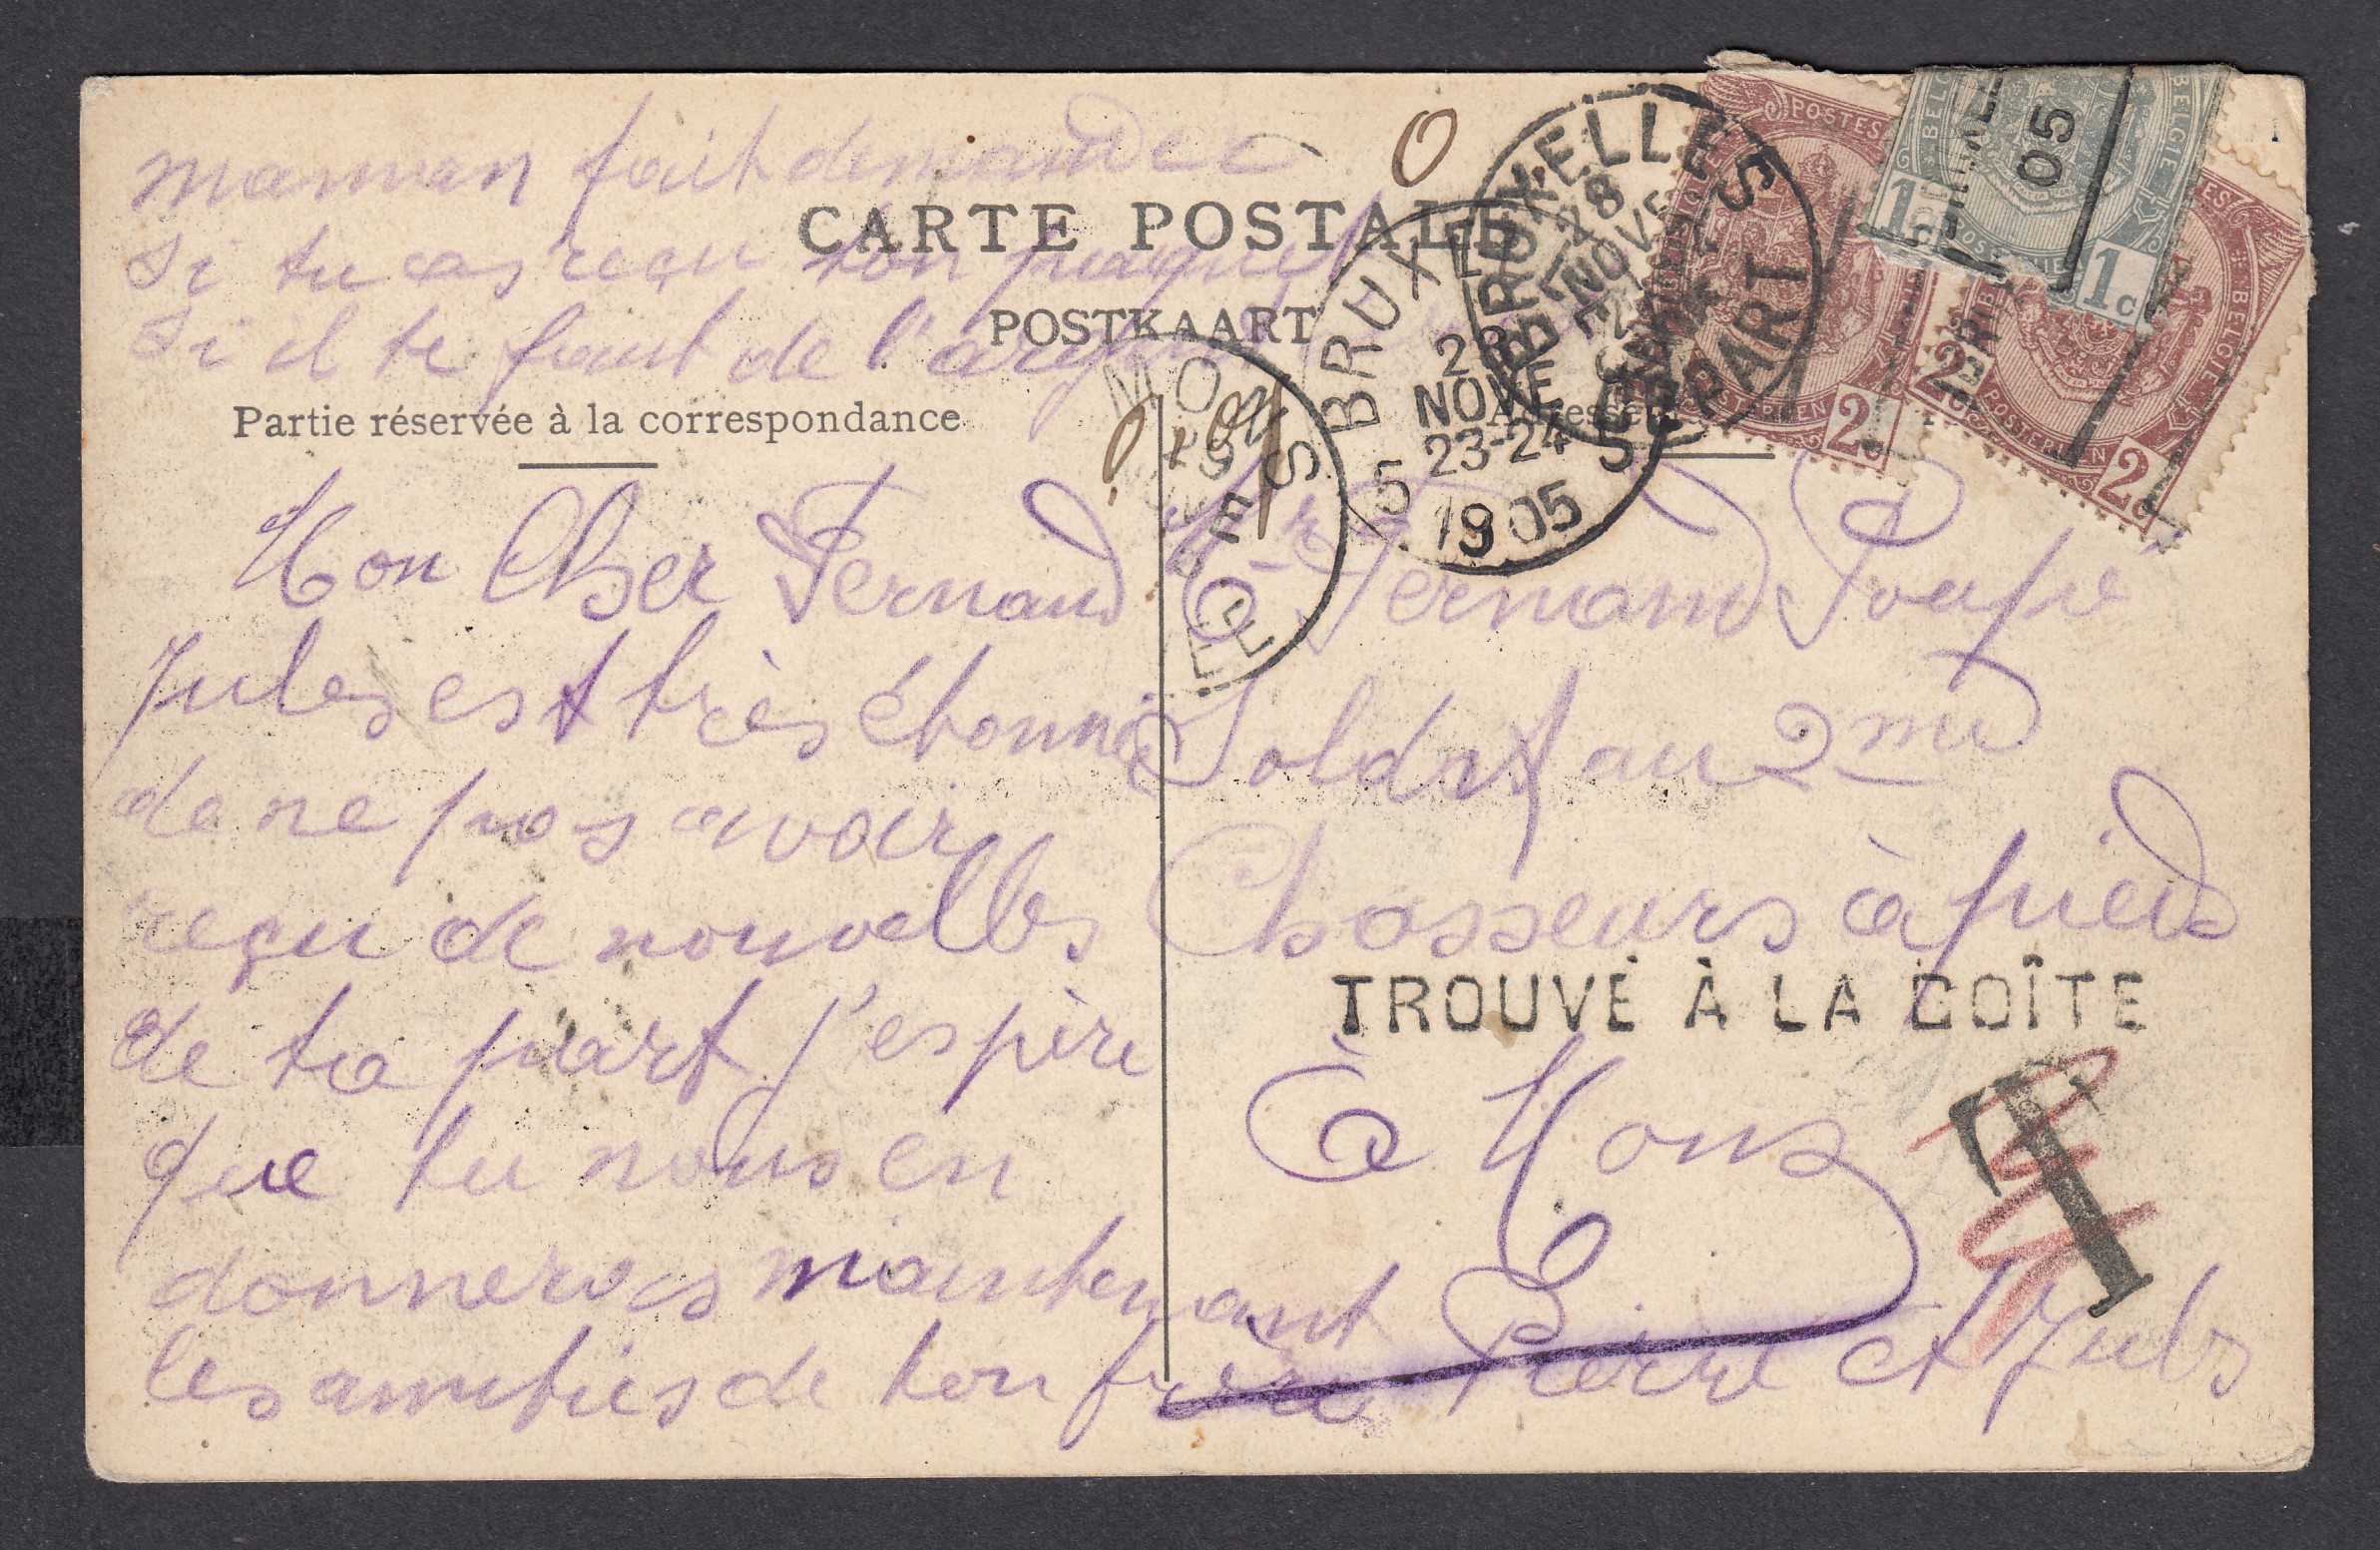 maman fait demander
si tu as reçu ton paquet
si il te faut de l'argent
CARTE POSTALE
POSTKAART
Partie réservée à la correspondance
Mon Cher Fernand
Jules est très étonné
de ne pas avoir
reçu de nouvelles
de ta part j'espère
que tu nous en
donneras maintenant
les amitiés de ton frère Pierre et Jules
0
BRUXELLES
28
NOVE
DÉPART
BRUX
28
NOVE
23-24
5 5
1905
POSTES
BELGIE
2
2
1c
1c
05
Mr Fernand Poupé
Soldat au 2me
Chasseurs à pied
TROUVÉ À LA BOÎTE
à Mons
T